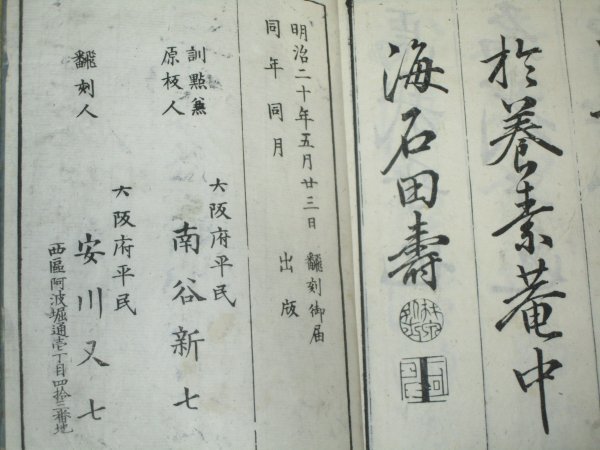 於養素菴中
海石田壽
明治二十年五月廿三日 飜刻御届
同年同月 出版
訓點兼
原板人
大阪府平民
南谷新七
飜刻人
大阪府平民
安川又七
西區阿波堀通壱丁目四拾三番地